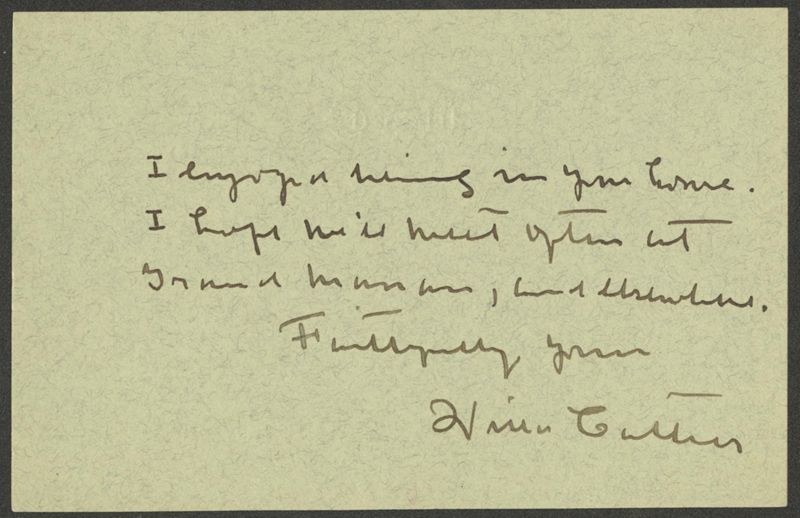 I enjoyed being in your home.
I hope we'll meet often at
Grand Manan, and elsewhere.
Faithfully yours
Willa Cather